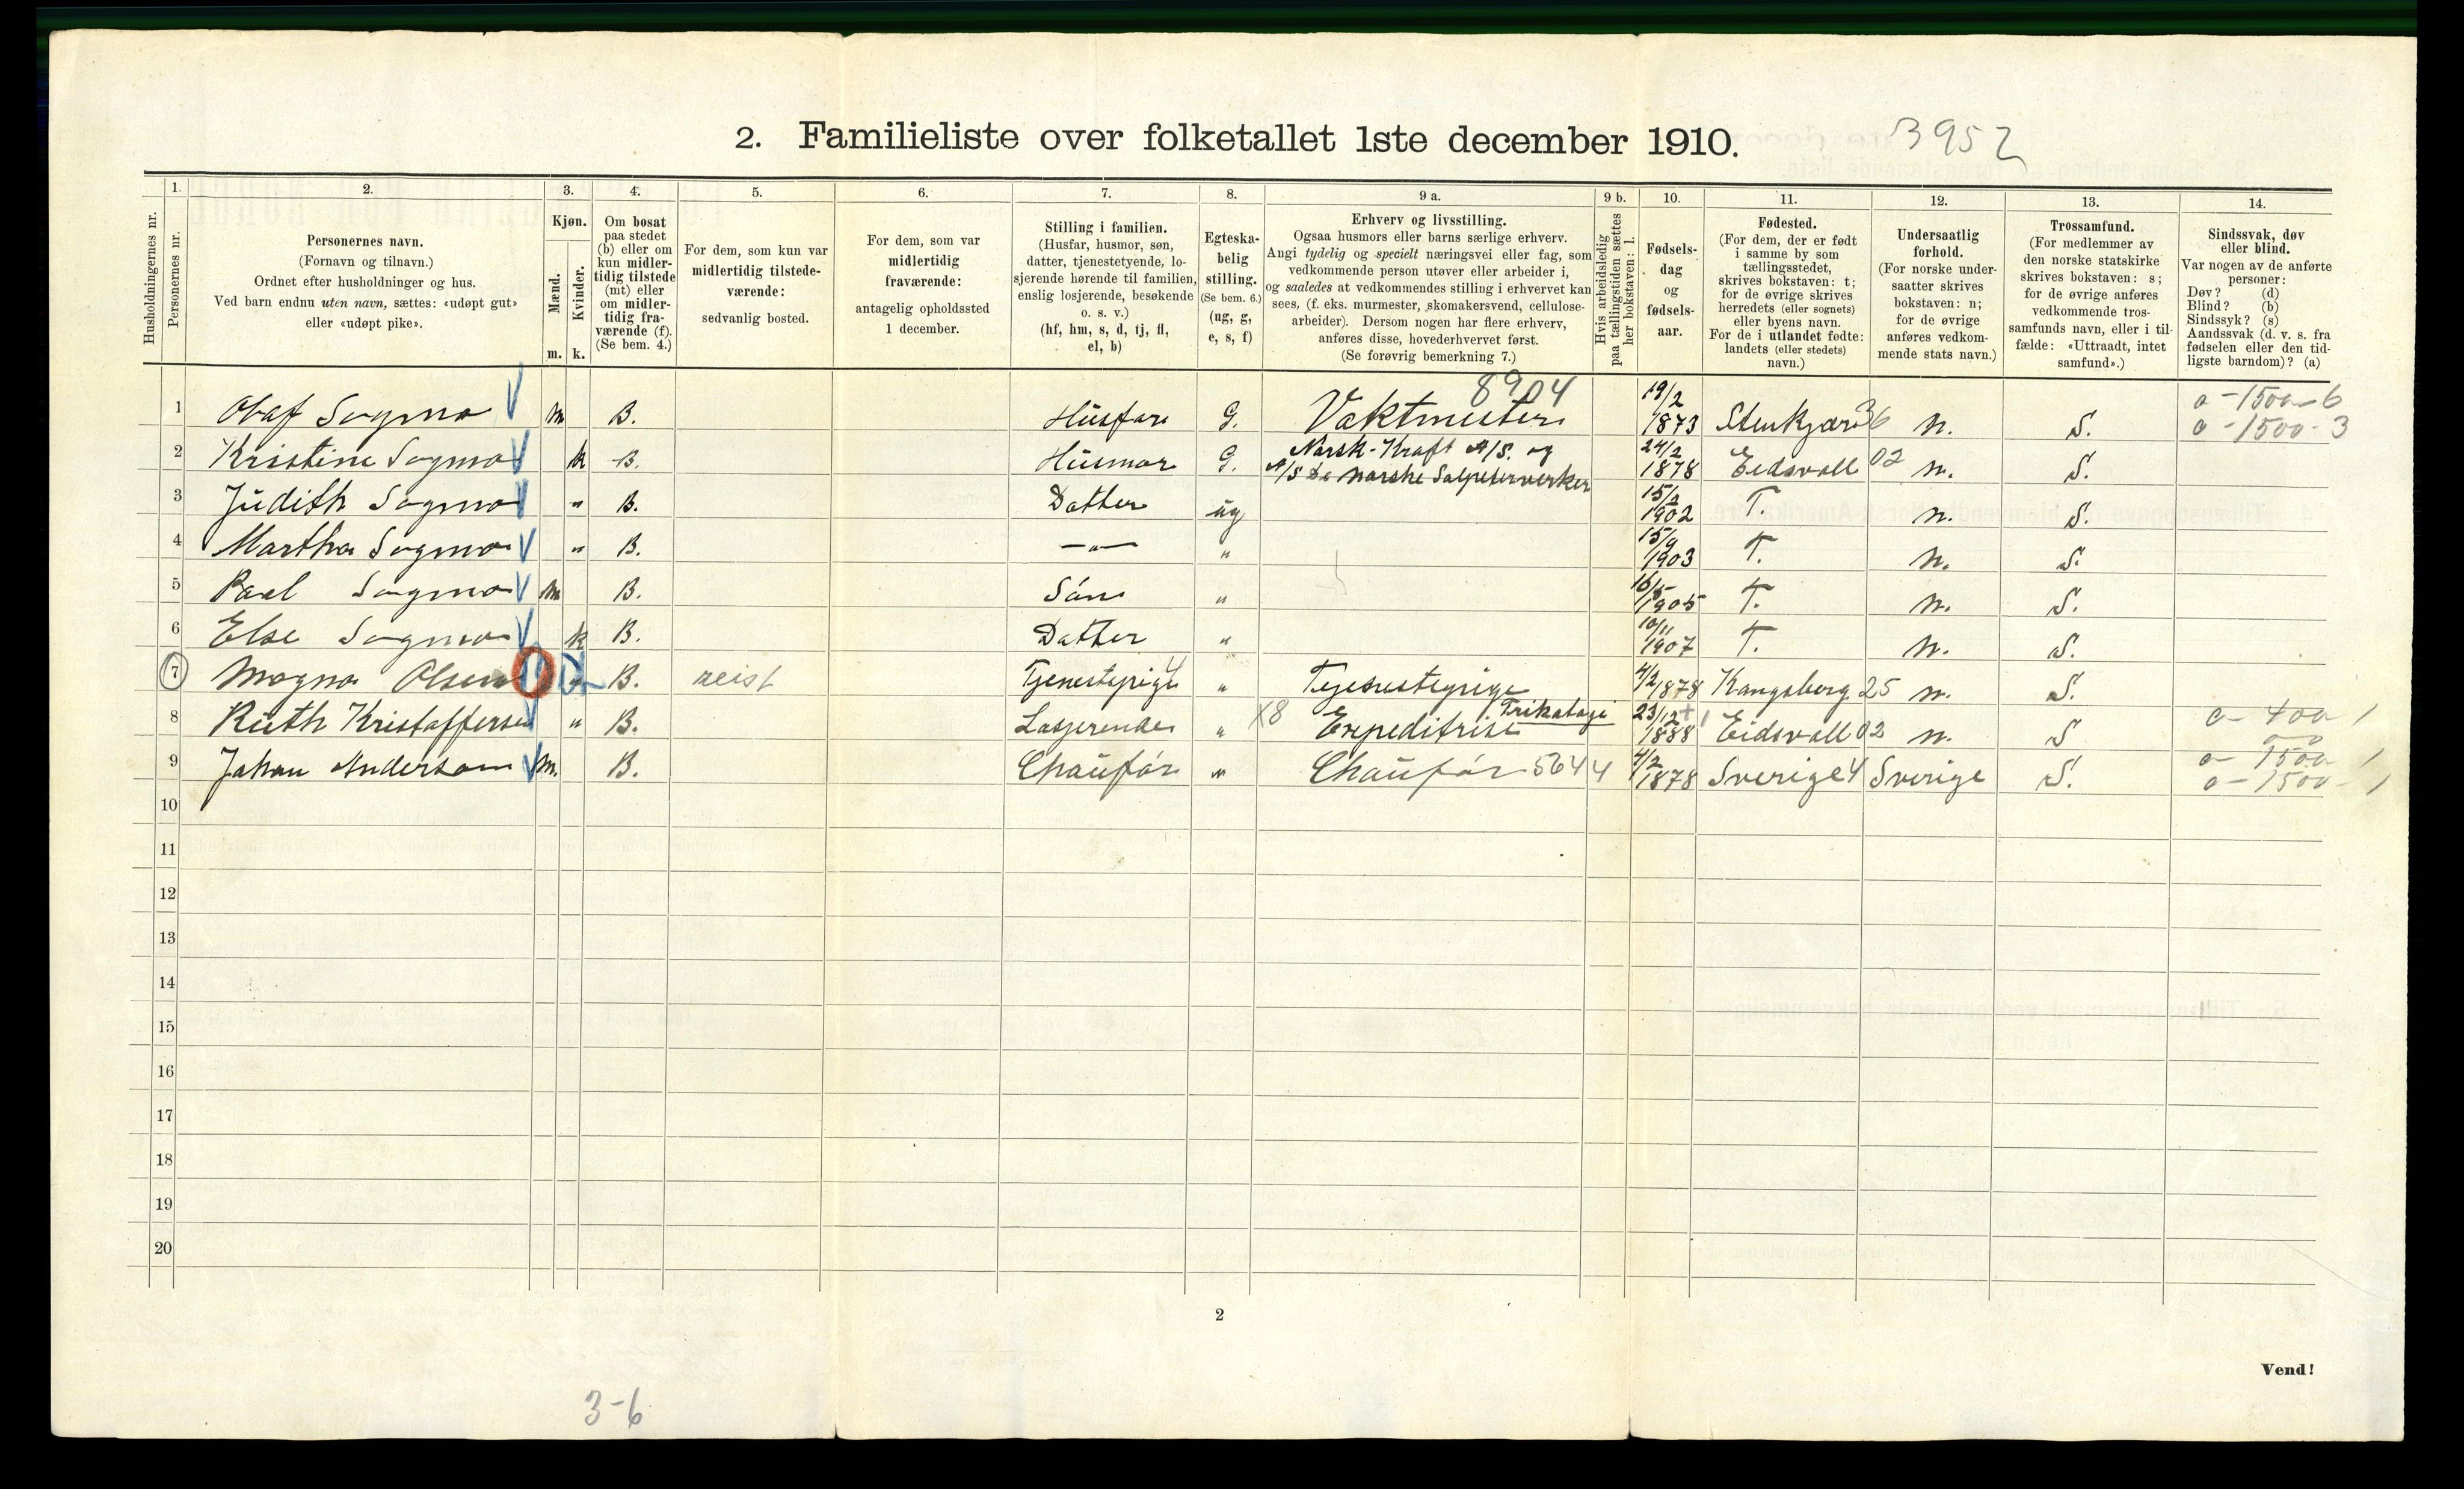 2. Familieliste over folketallet 1ste december 1910.
3952
Husholdningernes nr.
1.
Personernes nr.
2.
Personernes navn.
(Fornavn og tilnavn.)
Ordnet efter husholdninger og hus.
Ved barn endnu uten navn, sættes: «udøpt gut»
eller «udøpt pike».
3.
Kjøn.
Mænd.
Kvinder.
m. k.
4.
Om bosat
paa stedet
(b) eller om
kun midler-
tidig tilstede
(mt) eller
om midler-
tidig fra-
værende (f).
(Se bem. 4.)
5.
For dem, som kun var
midlertidig tilstede-
værende:
sedvanlig bosted.
6.
For dem, som var
midlertidig
fraværende:
antagelig opholdssted
1 december.
7.
Stilling i familien.
(Husfar, husmor, søn,
datter, tjenestetyende, lo-
sjerende hørende til familien,
enslig losjerende, besøkende
o. s. v.)
(hf, hm, s, d, tj, fl,
el, b)
8.
Egteska-
belig
stilling.
(Se bem. 6.)
(ug, g,
e, s, f)
9 a.
Erhverv og livsstilling.
Ogsaa husmors eller barns særlige erhverv.
Angi tydelig og specielt næringsvei eller fag, som
vedkommende person utøver eller arbeider i,
og saaledes at vedkommendes stilling i erhvervet kan
sees, (f. eks. murmester, skomakersvend, cellulose-
arbeider). Dersom nogen har flere erhverv,
anføres disse, hovederhvervet først.
(Se forøvrig bemerkning 7.)
9 b.
Hvis arbeidsledig
paa tællingstiden sættes
her bokstaven: l.
10.
Fødsels-
dag
og
fødsels-
aar.
11.
Fødested.
(For dem, der er født
i samme by som
tællingsstedet,
skrives bokstaven: t;
for de øvrige skrives
herredets (eller sognets)
eller byens navn.
For de i utlandet fødte:
landets (eller stedets)
navn.)
12.
Undersaatlig
forhold.
(For norske under-
saatter skrives
bokstaven: n;
for de øvrige
anføres vedkom-
mende stats navn.)
13.
Trossamfund.
(For medlemmer av
den norske statskirke
skrives bokstaven: s;
for de øvrige anføres
vedkommende tros-
samfunds navn, eller i til-
fælde: «Uttraadt, intet
samfund».)
14.
Sindssvak, døv
eller blind.
Var nogen av de anførte
personer:
Døv? (d)
Blind? (b)
Sindssyk? (s)
Aandssvak (d. v. s. fra
fødselen eller den tid-
ligste barndom)? (a)
8904
1 Olaf Sogmo m B. Husfar G. Vaktmester 19/2 1873 Stenkjær 36 n. S. 0-1500-6
0-1500-3
2 Kristine Sogmo k B. Husmor G. Norsk-Kraft A/S. og 24/2 1878 Eidsvoll 02 n. S.
A/S De norske Salpeterverker
3 Judith Sogmo " B. Datter ug 15/2 1902 T. n. S.
4 Martha Sogmo " B. —"— " 15/9 1903 T. n. S.
5 Paul Sogmo m B. Sön " 16/5 1905 T. n. S.
6 Else Sogmo k B. Datter " 10/11 1907 T. n. S.
7 Magna Olsen " B. reist Tjenestepige 4 " Tjenestepige 4/2 1878 Kongsberg 25 n. S.
8 Ruth Kristoffersen " B. Losjerende " X8 Expeditrise Trikotagi 23/12 1888 Eidsvoll 02 n. S 0-400 1
9 Johan Anderson m. B. Chauför " Chauför 5644 4/2 1878 Sverige 4 Sverige S. 0-1500 1
0-1500-1
10
11
12
13
14
15
16
17
18
19
20
2
Vend!
3-6